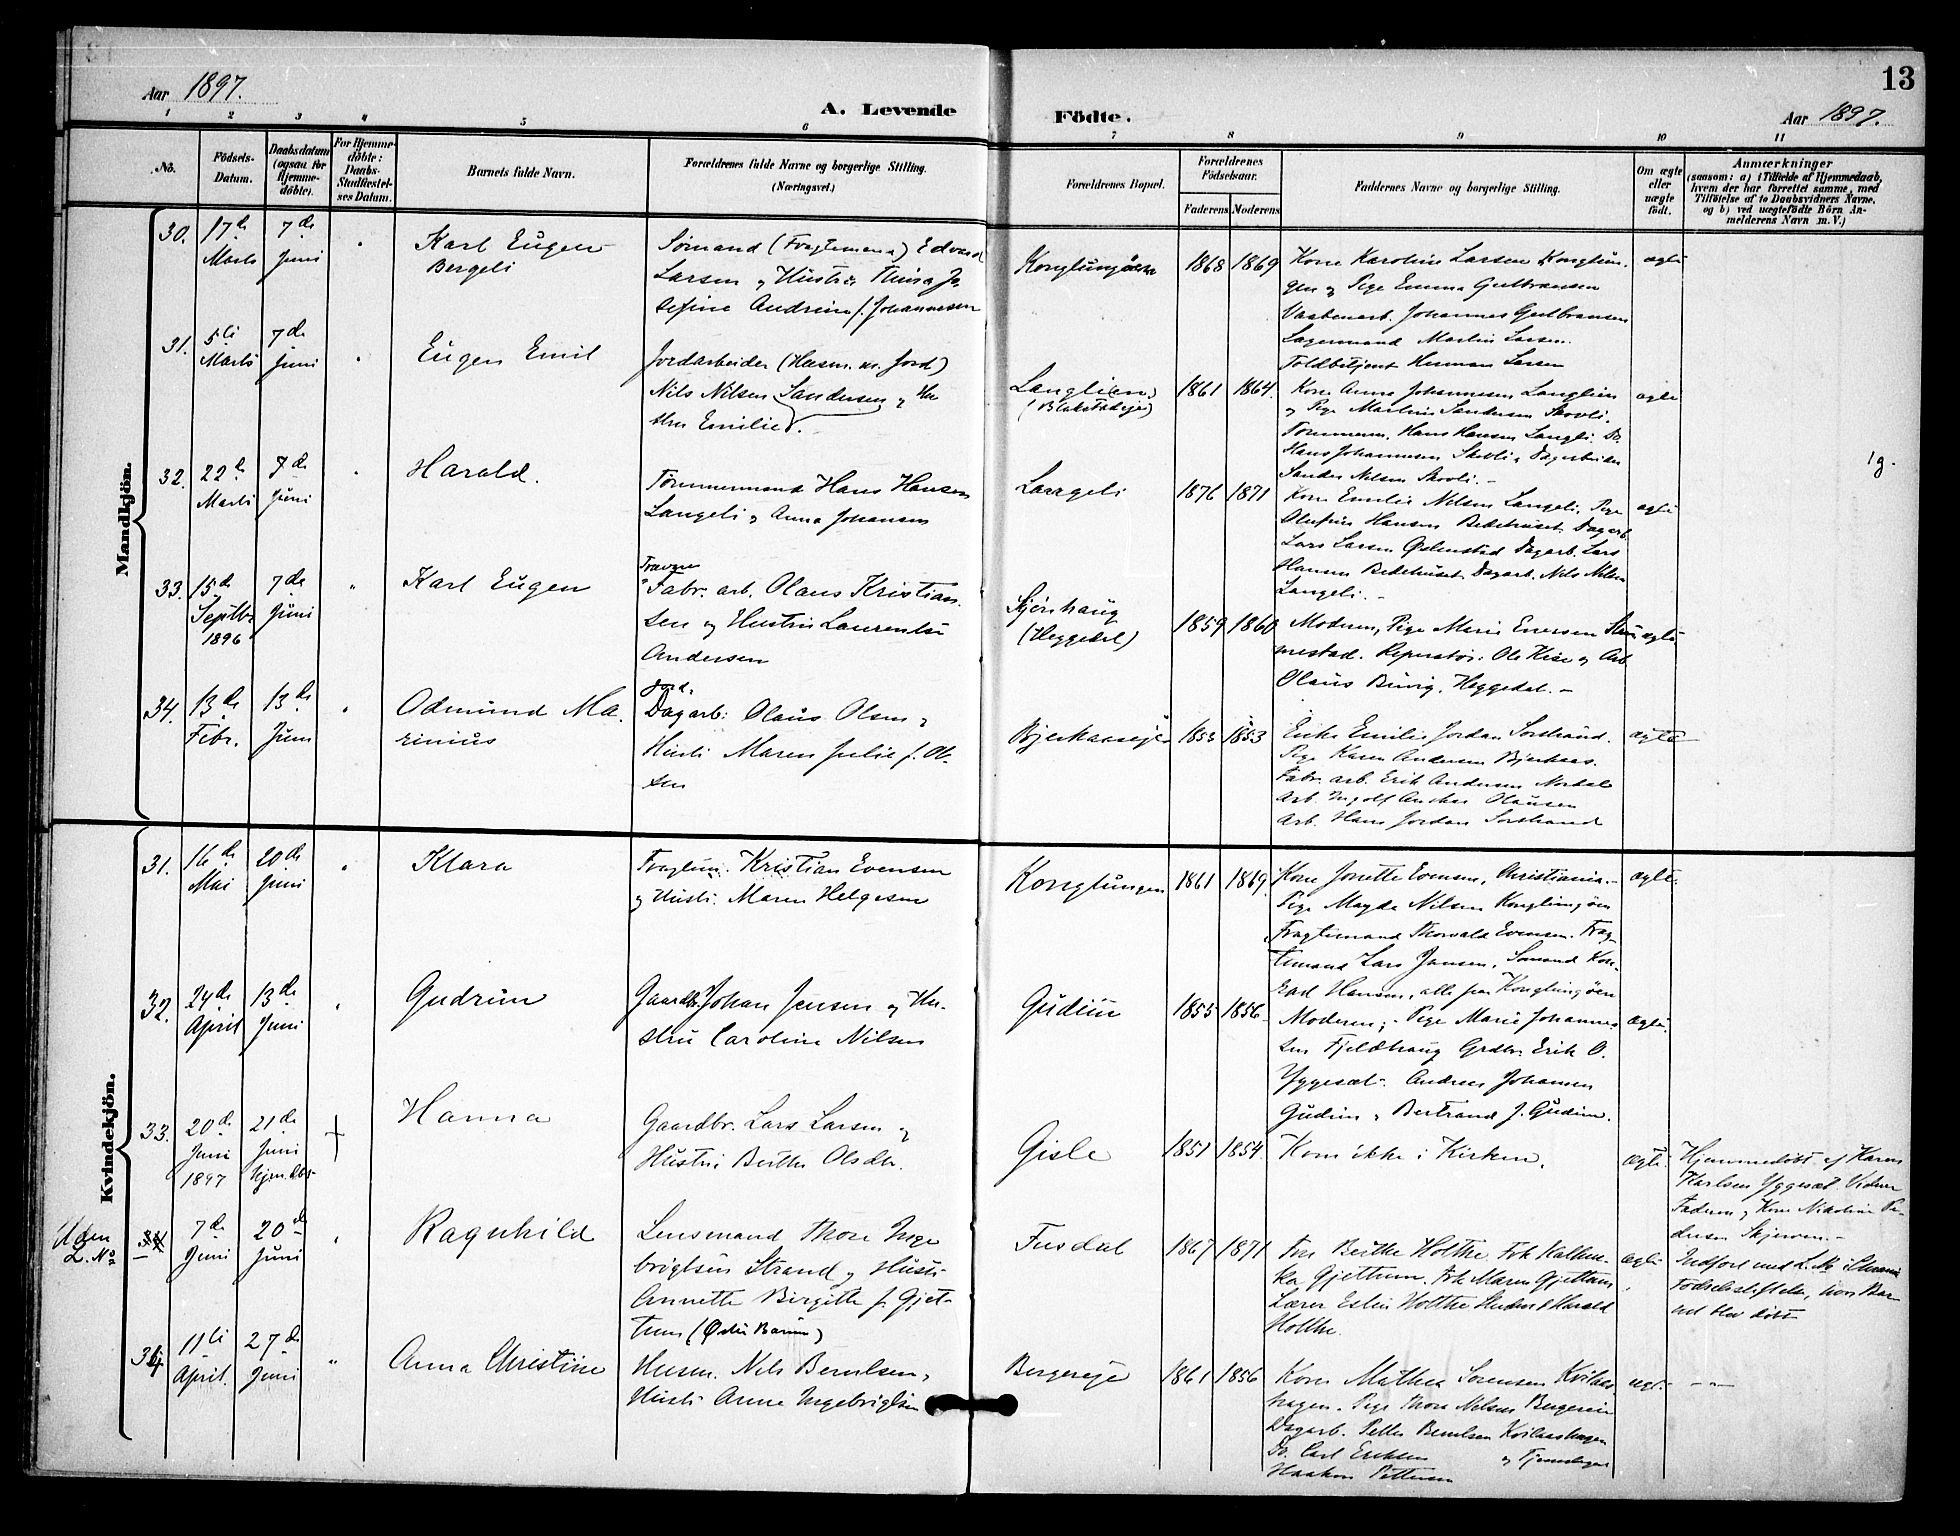 13
Aar 1897.
A. Levende Fødte.
Aar 1897.
1 2 3 4 5 6 7 8 9 10 11
No.
Fødsels-Datum.
Daabsdatum (ogsaa for Hjemme-døbte).
For Hjemme-døbte: Daabs-Stadfæstel-ses Datum.
Barnets fulde Navn.
Forældrenes fulde Navne og borgerlige Stilling.
(Næringsvei.)
Forældrenes Bopæl.
Forældrenes Fødselsaar.
Faderens Moderens
Faddernes Navne og borgerlige Stilling.
Om ægte eller uægte født.
Anmærkninger
(saasom: a) i Tilfælde af Hjemmedaab,
hvem der har forrettet samme, med
Tilføielse af to Daabsvidners Navne,
og b) ved uægtefødte Børn An-
melderens Navn m. V.)
Mandkjön.
30. 17de Marts 7de Juni
Karl Eugen
Bergeli
Sømand (Fragtemand) Edvard
Larsen og Hustru Thina Jo
sefine Andrine f. Johannesen
Konglungøen 1868 1869
Kone Karoline Larsen Konglun.
gen og Pige Emma Gulbransen
Johannes Gulbransen
Lagermand Martin Larsen.
Toldbetjent Herman Larsen
ægte
31. 5te Marts 7de Juni
Eugen Emil
Jordarbeider (Husm. m. Jord)
Nils Nilsen Sandersen og Hu
stru Emilie
Langlien 1861 1864.
(Blakstadeje)
Kone Anna Johannesen Langlien
og Pige Martine Sandersen Skovli,
Tømmerm. Hans Hansen Langli. Do.
Hans Johannesen Skovli, Dagarbeider
Sander Nilsen Skovli. -
ægte
32. 22de Marts 7de Juni
Harald.
Tømmermand Hans Hansen
Langeli og Anna Johansen
Langeli 1876 1871
Kone Emilie Nilsen Langeli, Pige
Olufine Hansen Bedehuset. Dagarb.
Lars Larsen Østenstad Dagarb. Lars
Hansen Bedehuset. Dagarb. Nils Nilsen
Langeli. -
ægte
33. 15de Septbr 1896 7de Juni
Karl Eugen
Fabr. arb. Olaus Kristian.
sen og Hustru Laurentse
Andersen
(Heggedal) 1859 1860
Moderen, Pige Marie Eversen
mestad. Reperatør: Ole Kise og Arb.
Olaus Buvig, Heggedal. -
ægte
34. 13de Febr. 13de Juni
Odmund Ma.
rinius
Jord.
Dagarb: Olaus Olsen og
Hustr Maren Julie f. Ol-
sen
Bjerkaaseje 1853 1853
Enke Emilie Jordan Sorstrand.
Pige Karen Andersen Bjerkaas.
Fabr. arb. Erik Andersen
Arb. Ingolf Anskar Olausen
Arb. Hans Jordan Sorstrand
ægte
Kvindekjön.
31. 16de Mai 20de Juni
Klara
Kristian Evensen
og Hustr. Maren Helgesen
Konglungen 1861 1869.
Kone Jonette Evensen, Christiania. -
Pige Magda Nilsen Konglungøen
Fragtemand Thorvald Evensen. Frag-
temand Lars Jansen, Sømand Kon-
Hansen, alle fra Konglungøen
ægte.
32. 24de April 13de Juni
Gudrun
Gaardb. Johan Jensen og Hu-
stru Caroline Nilsen
Gudim 1855 1856
Moderen; - Pige Marie Johannes
sen Fjeldhaug Grdbr. Erik O.
Yggesæt. Andreas Johansen
Gudim og Bertrand J. Gudim.
ægte.
33. 20de Juni 1897 21de Juni Hjemdbt
Hanna
Gaardbr. Lars Larsen og
Hustru Berthe Olsdtr.
Gisle 1851 1854.
Kom ikke i Kirken.
ægte.
Hjemmedøbt af Karen
Karlsen Yggesæt. Vidner
Faderen og Kone Nikoline Pe-
dersen Skjerven. -
Uden L. No 34 7de Juni 20de Juni
Ragnhild
Lensmand Thore Inge
brigtsen Strand og Hustr.
Annette Birgitte f. Gjet-
tum (Østre Bærum)
Fusdal 1867 1871
Frk Kathin-
ka Gjettum. Frk Maren Gjettum
Lærer Holthe Student Harald
Holthe.
ægte
Indført med L. No i
Fødselsstiftelse, hvor Bar
net blev døbt
34 11te April. 27de Juni
Anna Christine
Husm. Nils Berntsen,
Hustr. Anne Ingebrigtsen
Bergereje 1861 1856
Kone Mathea Sorensen Kvilaas
hagen. Pige Thora Nilsen
Dagarb. Petter Berntsen Kvilaashagen
Do. Carl Eriksen
Haakon Pettersen
ægt.